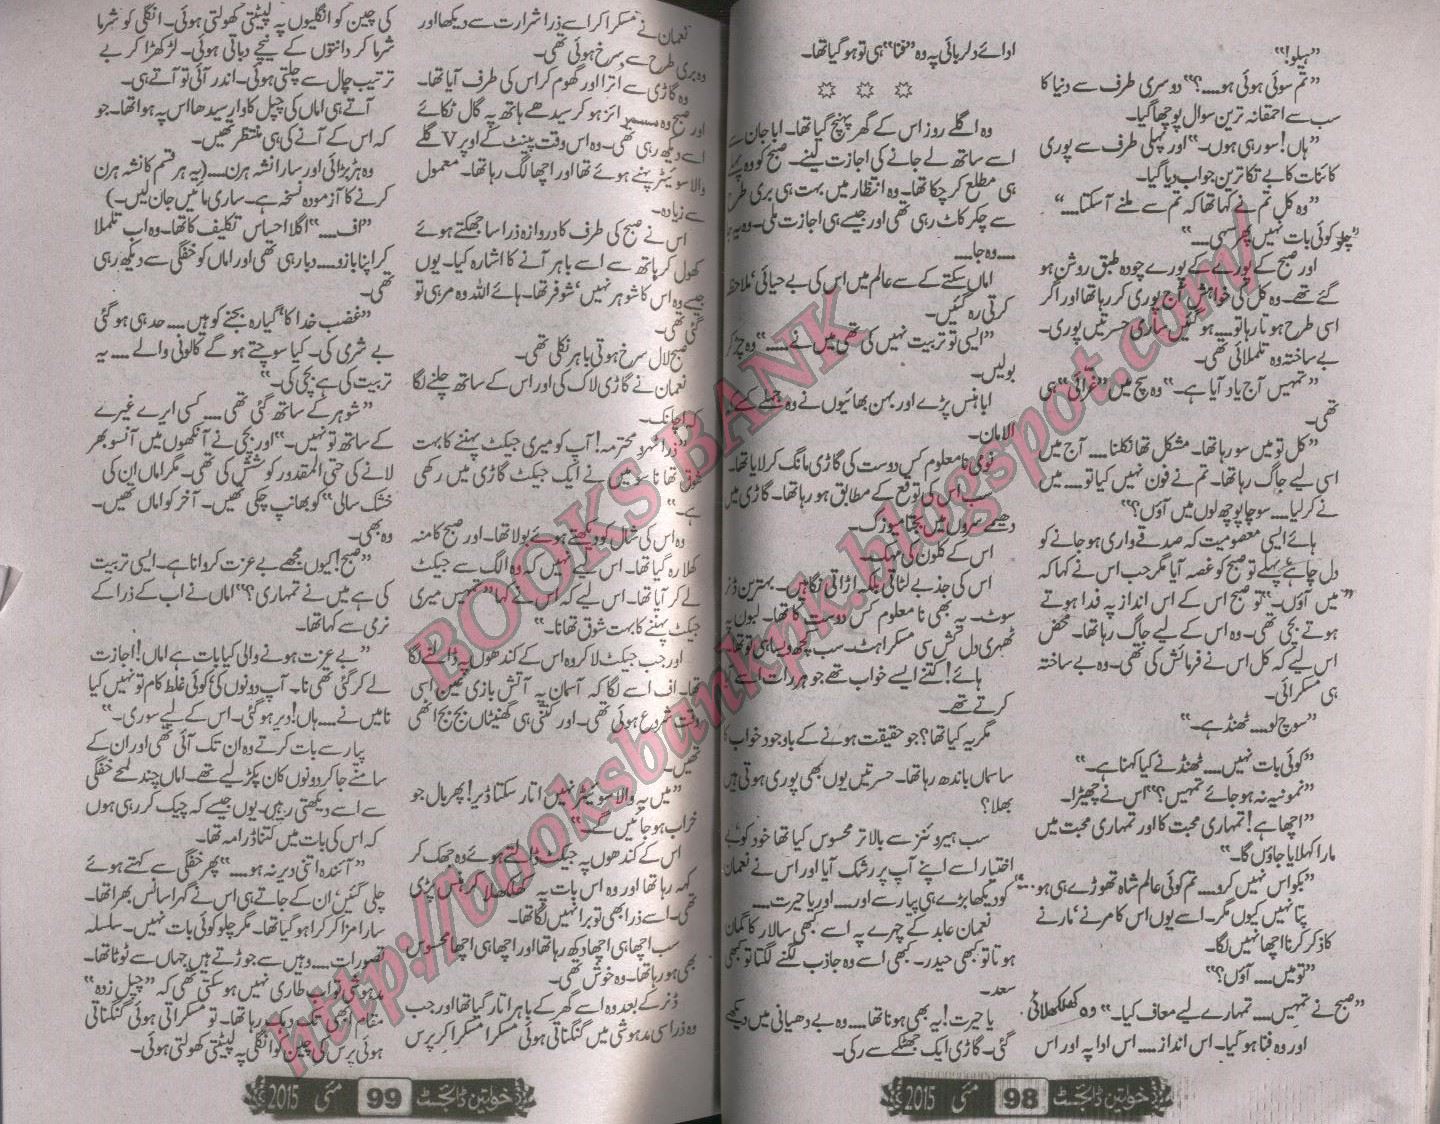 ”ہیلو!“
”تم سوئی ہوئی ہو....؟“ دوسری طرف سے دنیا کا
سب سے احمقانہ ترین سوال پوچھا گیا۔
”ہاں! سو رہی ہوں۔“ اور پہلی طرف سے پوری
کائنات کا بے تکا ترین جواب دیا گیا۔
”وہ کل تم نے کہا تھا کہ تم سے ملنے آ سکتا....“
”چلو کوئی بات نہیں پھر سہی....“
اور صبح کے پورے کے پورے چودہ طبق روشن ہو
گئے تھے۔ وہ کل کی خواہش آج پوری کر رہا تھا اور اگر
اسی طرح ہوتا رہا تو.... ہو گئیں ساری حسرتیں پوری۔
بے ساختہ وہ تلملائی تھی۔
”تمہیں آج یاد آیا ہے۔“ وہ سچ میں ”غرائی“ ہی
تھی۔
”کل تو میں سو رہا تھا۔ مشکل تھا نکلنا.... آج میں
اسی لیے جاگ رہا تھا۔ تم نے فون نہیں کیا تو.... میں
نے کر لیا.... سوچا پوچھ لوں میں آؤں؟“
ہائے ایسی معصومیت کہ صدقے واری ہو جانے کو
دل چاہے پہلے تو صبح کو غصہ آیا مگر جب اس نے کہا کہ
”میں آؤں۔“ تو صبح اس کے اس انداز پہ فدا ہوتے
ہوتے بچی تھی۔ وہ اس کے لیے جاگ رہا تھا۔ محض
اس لیے کہ کل اس نے فرمائش کی تھی۔ وہ بے ساختہ
ہی مسکرائی۔
”سوچ لو.... ٹھنڈ ہے۔“
”کوئی بات نہیں.... ٹھنڈ نے کیا کہنا ہے۔“
”نمونیہ نہ ہو جائے تمہیں؟“ اس نے چھیڑا۔
”اچھا ہے! تمہاری محبت کا اور تمہاری محبت میں
مارا کہلایا جاؤں گا۔“
”بکواس نہیں کرو.... تم کوئی عالم شاہ تھوڑے ہی ہو....“
پتا نہیں کیوں مگر۔ اسے یوں اس کا مرنے ’مارنے
کا ذکر کرنا اچھا نہیں لگا۔
”تو میں.... آؤں؟“
”صبح نے تمہیں.... تمہارے لیے معاف کیا۔“ وہ کھلکھلائی
اور وہ فنا ہو گیا۔ اس انداز.... اس ادا پہ اور اس
ادائے دلربائی پہ وہ ”فنا“ ہی تو ہو گیا تھا۔
☼ ☼ ☼
وہ اگلے روز اس کے گھر پہنچ گیا تھا۔ ابا جان سے
اسے ساتھ لے جانے کی اجازت لینے۔ صبح کو وہ پہلے
ہی مطلع کر چکا تھا۔ وہ انتظار میں بہت ہی بری طرح
سے چکر کاٹ رہی تھی اور جیسے ہی اجازت ملی۔ وہ یہ جا
.... وہ جا....
اماں سکتے کے سے عالم میں اس کی بے حیائی ’ملاحظہ
کرتی رہ گئیں۔
”ایسی تو تربیت نہیں کی تھی میں نے....“ وہ چڑ کر
بولیں۔
ابا ہنس پڑے اور بہن بھائیوں نے وہ جملے کسے
الامان۔
نومی نا معلوم کس دوست کی گاڑی مانگ کر لایا تھا۔
سب اس کی توقع کے مطابق ہو رہا تھا۔ گاڑی میں
دھیمے سروں میں بجتا میوزک۔
اس کے کلون کی مہک۔
اس کی جذبے لٹاتی بلکہ اڑاتی نگاہیں۔ بہترین ڈنر
سوٹ۔ یہ بھی نا معلوم کس دوست کا تھا۔ لبوں پہ
ٹھہری دل کش سی مسکراہٹ۔ سب کچھ ویسا ہی تو تھا
ہائے! کتنے ایسے خواب تھے جو ہر رات اسے آیا
کرتے تھے۔
مگر یہ کیا تھا؟ جو حقیقت ہونے کے باوجود خواب کا
سا سماں باندھ رہا تھا۔ حسرتیں یوں بھی پوری ہوتی ہیں
بھلا؟
سب ہیروئنز سے بالا تر محسوس کیا تھا خود کو بے
اختیار اسے اپنے آپ پر رشک آیا اور اس نے نعمان
کو دیکھا بڑے ہی پیار سے اور.... اور یا حیرت....
نعمان عابد کے چہرے پہ اسے کبھی سالار کا گمان
ہوتا تو کبھی حیدر۔ کبھی اسے وہ جاذب لگنے لگتا تو کبھی
سعد۔
یا حیرت! یہ بھی ہونا تھا.... وہ بے دھیانی میں دیکھے
گئی۔ گاڑی ایک جھٹکے سے رکی۔
خواتین ڈائجسٹ 98 مئی 2015
نعمان نے مسکرا کر اسے ذرا شرارت سے دیکھا اور
وہ بری طرح سے سرخ ہوئی تھی۔
وہ گاڑی سے اترا اور گھوم کر اس کی طرف آیا تھا۔
اور صبح وہ ائز ہو کر سیدھے ہاتھ پہ گال ٹکائے
اسے دیکھ رہی تھی۔ وہ اس وقت پینٹ کے اوپر V گلے
والا سویٹر پہنے ہوئے تھا اور اچھا لگ رہا تھا۔ معمول
سے زیادہ۔
اس نے صبح کی طرف کا دروازہ ذرا سا جھکتے ہوئے
کھول کر ہاتھ سے اسے باہر آنے کا اشارہ کیا۔ یوں
جیسے وہ اس کا شوہر نہیں ’شوفر تھا۔ ہائے اللہ وہ مر ہی تو
گئی تھی۔
صبح لال سرخ ہوتی باہر نکلی تھی۔
نعمان نے گاڑی لاک کی اور اس کے ساتھ چلنے لگا
کہ اچانک۔
”ذرا ٹھہرو محترمہ! آپ کو میری جیکٹ پہننے کا بہت
شوق تھا نا.... میں نے ایک جیکٹ گاڑی میں رکھی
ہے۔“
وہ اس کی شال کو دیکھتے ہوئے بولا تھا۔ اور صبح کا منہ
کھلا رہ گیا تھا۔ اس لیے نہیں کہ وہ الگ سے جیکٹ
لے کر آیا تھا۔ اس لیے کہ اس نے کہا ”تمہیں میری
جیکٹ پہننے کا بہت شوق تھا نا۔“
اور جب جیکٹ لا کر وہ اس کے کندھوں پہ ڈالنے لگا
تھا۔ اف اسے لگا کہ آسمان پہ آتش بازی عین اسی
وقت شروع ہوئی تھی۔ اور کتنی ہی گھنٹیاں بج بج اٹھی
تھیں۔
”میں یہ والا سویٹر نہیں اتار سکتا ڈیر! پھر بال جو
خراب ہو جائیں گے۔“
اس کے کندھوں پہ جیکٹ ڈالتے ہوئے وہ جھک کر
کہہ رہا تھا اور وہ اس بات پہ کھلکھلا کر ہنس پڑی
تھی۔ اسے ذرا بھی تو برا نہیں لگا تھا۔
سب اچھا ہی اچھا دکھ رہا تھا اور اچھا ہی اچھا محسوس
بھی ہو رہا تھا۔ وہ خوش تھی۔
ڈنر کے بعد وہ اسے گھر کے باہر اتار گیا تھا اور جب
وہ ذرا سی مدہوشی میں گنگناتی ہوئی مسکرا مسکرا کر پرس
کی چین کو انگلیوں پہ لپیٹتی کھولتی ہوئی۔ انگلی کو شرما
شرما کر دانتوں کے نیچے دباتی ہوئی۔ لڑکھڑا کر بے
ترتیب چال سے چلتی ہوئی۔ اندر آئی تو آتے ہی۔
آتے ہی اماں کی چپل کا وار سیدھا اس پہ ہوا تھا۔ جو
کہ اس کے آنے کی ہی منتظر تھیں۔
وہ ہڑبڑائی اور سارا نشہ ہرن.... (یہ ہر قسم کا نشہ ہرن
کرنے کا آزمودہ نسخہ ہے۔ ساری مائیں جان لیں۔)
”اف....“ اگلا احساس تکلیف کا تھا۔ وہ اب تلملا
کر اپنا بازو.... دبا رہی تھی اور اماں کو خفگی سے دیکھ رہی
تھی۔
”غضب خدا کا ’گیارہ بجنے کو ہیں.... حد ہی ہو گئی
بے شرمی کی۔ کیا سوچتے ہوں گے کالونی والے.... یہ
تربیت کی ہے بچی کی۔“
”شوہر کے ساتھ گئی تھی.... کسی ایرے غیرے
کے ساتھ تو نہیں۔“ اور بچی نے آنکھوں میں آنسو بھر
لانے کی حتی المقدور کوشش کی تھی۔ مگر اماں ان کی
خشک سالی ”کو بھانپ چکی تھیں۔ آخر کو اماں تھیں۔
وہ بھی۔
”صبح! کیوں مجھے بے عزت کروانا ہے۔ ایسی تربیت
کی ہے میں نے تمہاری؟“ اماں نے اب کے ذرا کے
نرمی سے کہا تھا۔
”بے عزت ہونے والی کیا بات ہے اماں! اجازت
لے کر گئی تھی نا۔ آپ دونوں کی کوئی غلط کام تو نہیں کیا
نا میں نے.... ہاں! دیر ہو گئی۔ اس کے لیے سوری۔“
پیار سے بات کرتے وہ ان تک آئی تھی اور ان کے
سامنے جا کر دونوں کان پکڑ لیے تھے۔ اماں چند لمحے خفگی
سے اسے دیکھتی رہیں۔ یوں جیسے کہ چیک کر رہی ہوں
کہ اس کی بات میں کتنا ڈرامہ تھا۔
”آئندہ اتنی دیر نہ ہو....“ پھر خفگی سے کہتے ہوئے
چلی گئیں ’ان کے جاتے ہی اس نے گہرا سانس بھرا تھا۔
سارا مزا کرکرا ہو گیا تھا۔ مگر چلو کوئی بات نہیں۔ سلسلہ
تصورات.... وہیں سے جوڑتے ہیں جہاں سے ٹوٹا تھا۔
مدہوشی تو اب طاری نہیں ہو سکتی تھی کہ ”چپل زدہ“
مقام ابھی تک دہک رہا تھا۔ تو مسکراتی ہوئی گنگناتی
ہوئی پرس کی چین کو انگلی پہ لپیٹتی کھولتی ہوئی۔
خواتین ڈائجسٹ 99 مئی 2015
BOOKS BANK
http://booksbankpk.blogspot.com/